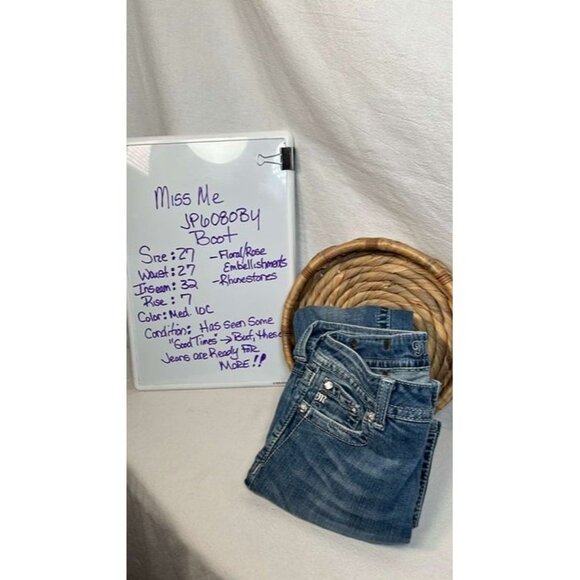 Miss Me
JP6080B4
Boot
Size: 27 - Floral/Rose
Waist: 27 Embellishments
Inseam: 32 - Rhinestones
Rise: 7
Color: Med.
Condition: Has seen some
"Good Times" → But, these
Jeans are Ready for
MORE!!